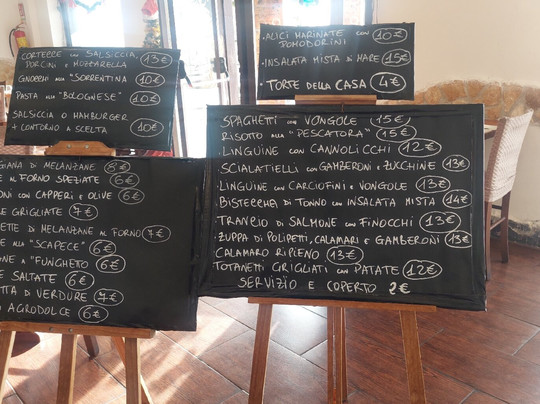 CORTECCE CON SALSICCIA,
PORCINI E MOZZARELLA 13€
GNOCCHI ALLA "SORRENTINA 10€
PASTA ALLA "BOLOGNESE" 10€
SALSICCIA O HAMBURGER
+ CONTORNO A SCELTA 10€
GIANA DI MELANZANE 8€
AL FORNO SPEZIATE 6€
ONI CON CAPPERI E OLIVE 6€
E GRIGLIATE 7€
ETTE DI MELANZANE AL FORNO 7€
E ALLA "SCAPECE" 6€
NE A "FUNGHETO" 6€
E SALTATE 6€
TTA DI VERDURE 7€
AGRODOLCE 6€
· ALICI MARINATE CON 10€
POMODORINI
· INSALATA MISTA DI MARE 15€
· TORTE DELLA CASA 4€
SPAGHETTI CON VONGOLE 15€
RISOTTO ALLA "PESCATORA" 15€
LINGUINE CON CANNOLICCHI 12€
SCIALATIELLI CON GAMBERONI E ZUCCHINE 13€
LINGUINE CON CARCIOFINI E VONGOLE 13€
BISTECCHA DI TONNO CON INSALATA MISTA 14€
TRANCIO DI SALMONE CON FINOCCHI 13€
ZUPPA DI POLIPETTI, CALAMARI E GAMBERONI 13€
CALAMARO RIPIENO 13€
TOTANETTI GRIGLIATI CON PATATE 12€
SERVIZIO E COPERTO 2€